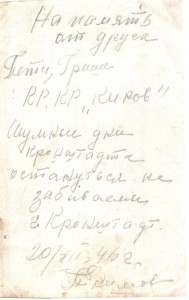 На память
от друга
Пети, Гриши
КР. КР "Киров"
Шумные дни
Кронштадта
остануться не
забываем
г. Кронштадт.
20/XII-46 г.